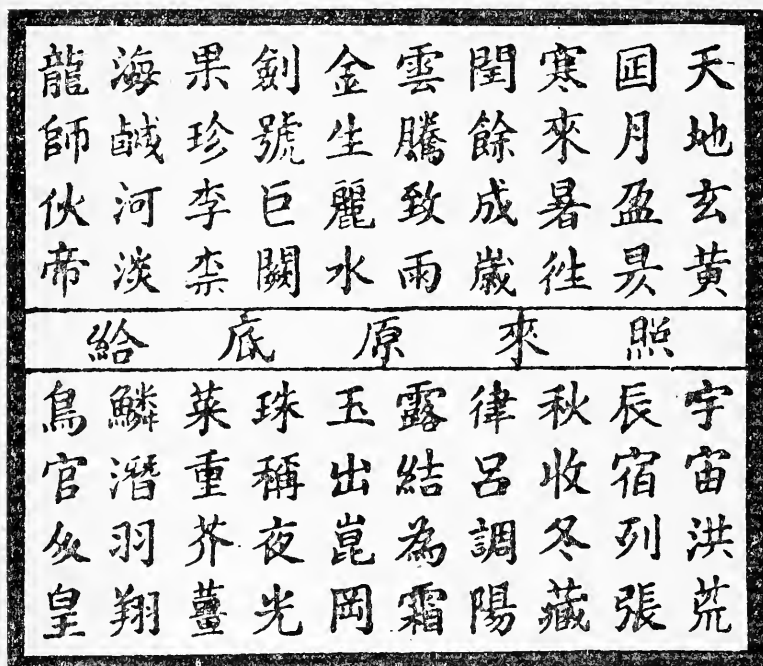 天地玄黃
囸月盈昃
寒來暑徃
閏餘成嵗
雲騰致雨
金生麗水
劍號巨闕
果珍李柰
海鹹河淡
龍師伙帝
照來原底給
宇宙洪荒
辰宿列張
秋收冬藏
律呂調陽
露結為霜
玉出崑岡
珠稱夜光
菜重芥薑
鱗潛羽翔
鳥官皇